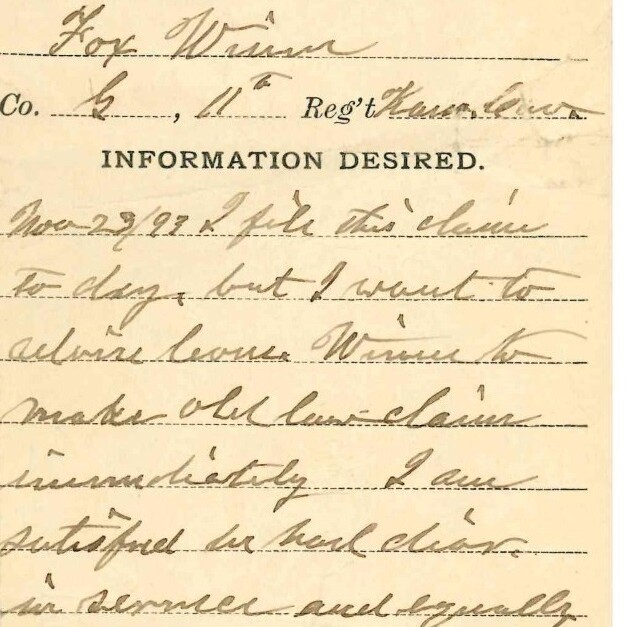 Fox Winne
Co. G, 11th Reg't Kans. Cav.
INFORMATION DESIRED.
Nov 23/93 I file this claim
to day, but I want to
advise Winne to
make old law claim
immediately I am
satisfied he had diar.
in service and equally